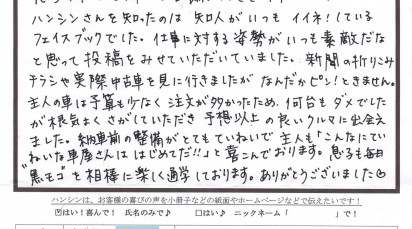 ハンシンさんを知ったのは 知人がいつも イイネ！している
フェイスブックでした。仕事に対する姿勢がいつも素敵だな
と思って投稿をみせていただいていました。新聞の折りこみ
チラシや実際中古車を見に行きましたが なんだかピン！ときません。
主人の車は予算も少なく注文が多かったため、何台もダメでした
が根気よくさがしていただき 予想以上の良いクルマに出会え
ました。納車前の整備がとてもていねいで主人も「こんなにてい
ねいな車屋さんは はじめてだ!!」と喜こんでおります。息子も毎日
黒モコを相棒に楽しく通学しております。ありがとうございました♡
ハンシンは、お客様の喜びの声を小冊子などの紙面やホームページなどで伝えたいです！
☑はい！喜んで！ 氏名のみで♪ □はい♪ ニックネーム「 」で！